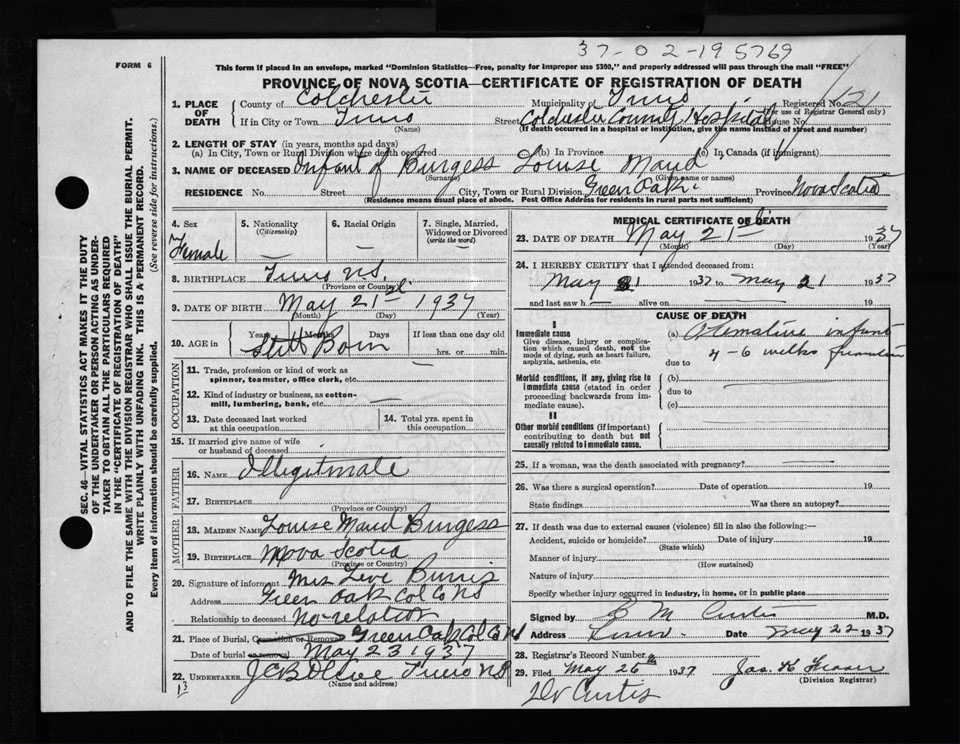 37-02-19 5769
FORM 6
This form if placed in an envelope, marked "Dominion Statistics—Free, penalty for improper use $300," and properly addressed will pass through the mail "FREE"
PROVINCE OF NOVA SCOTIA—CERTIFICATE OF REGISTRATION OF DEATH
1. PLACE OF DEATH
County of Colchester Municipality of Truro Registered No. 121
(For use of Registrar General only)
If in City or Town Truro Street Colchester County Hospital House No.
(Name) (If death occurred in a hospital or institution, give the name instead of street and number)
2. LENGTH OF STAY (in years, months and days)
(a) In City, Town or Rural Division where death occurred (b) In Province (c) In Canada (if immigrant)
3. NAME OF DECEASED Infant of Burgess Louise Maud
(Surname) (Given name or names)
RESIDENCE No. Street City, Town or Rural Division Green Oak Province Nova Scotia
(Residence means usual place of abode. Post Office Address for residents in rural parts not sufficient)
4. Sex Female
5. Nationality (Citizenship) —
6. Racial Origin —
7. Single, Married, Widowed or Divorced (write the word) —
8. BIRTHPLACE Truro N.S.
(Province or Country)
9. DATE OF BIRTH May 21st 1937
(Month) (Day) (Year)
10. AGE in Years Months Days If less than one day old
Still Born hrs. or min.
OCCUPATION
11. Trade, profession or kind of work as spinner, teamster, office clerk, etc. —
12. Kind of industry or business, as cotton-mill, lumbering, bank, etc. —
13. Date deceased last worked at this occupation
14. Total yrs. spent in this occupation
15. If married give name of wife or husband of deceased
FATHER
16. NAME Illegitimate
17. BIRTHPLACE
(Province or Country)
MOTHER
18. MAIDEN NAME Louise Maud Burgess
19. BIRTHPLACE Nova Scotia
(Province or Country)
20. Signature of informant Mrs Levi Burris
Address Green Oak Col Co NS
Relationship to deceased No-relation
21. Place of Burial, Cremation or Removal Green Oak Col Co NS
Date of burial or removal May 23 1937
22. UNDERTAKER Truro NS
(Name and address)
13
MEDICAL CERTIFICATE OF DEATH
23. DATE OF DEATH May 21st 1937
(Month) (Day) (Year)
24. I HEREBY CERTIFY that I attended deceased from:
May 21 1937 to May 21 1937
and last saw h — alive on 19
CAUSE OF DEATH
I
Immediate cause
Give disease, injury or complication which caused death, not the mode of dying, such as heart failure, asphyxia, asthenia, etc.
(a) infant
due to 4-6
Morbid conditions, if any, giving rise to immediate cause (stated in order proceeding backwards from immediate cause).
(b)
due to
(c)
II
Other morbid conditions (if important) contributing to death but not causally related to immediate cause.
25. If a woman, was the death associated with pregnancy?
26. Was there a surgical operation? Date of operation 19
State findings Was there an autopsy?
27. If death was due to external causes (violence) fill in also the following:—
Accident, suicide or homicide? Date of injury 19
(State which)
Manner of injury
(How sustained)
Nature of injury
Specify whether injury occurred in industry, in home, or in public place
Signed by M Curtis M.D.
Address Truro. Date May 22 1937
28. Registrar's Record Number
29. Filed May 26th 1937 Jas. K Fraser
(Division Registrar)
Dr Curtis
SEC. 46—VITAL STATISTICS ACT MAKES IT THE DUTY
OF THE UNDERTAKER OR PERSON ACTING AS UNDERTAKER TO OBTAIN ALL THE PARTICULARS REQUIRED
IN THE "CERTIFICATE OF REGISTRATION OF DEATH"
AND TO FILE THE SAME WITH THE DIVISION REGISTRAR WHO SHALL ISSUE THE BURIAL PERMIT.
WRITE PLAINLY WITH UNFADING INK. THIS IS A PERMANENT RECORD.
Every item of information should be carefully supplied. (See reverse side for instructions.)